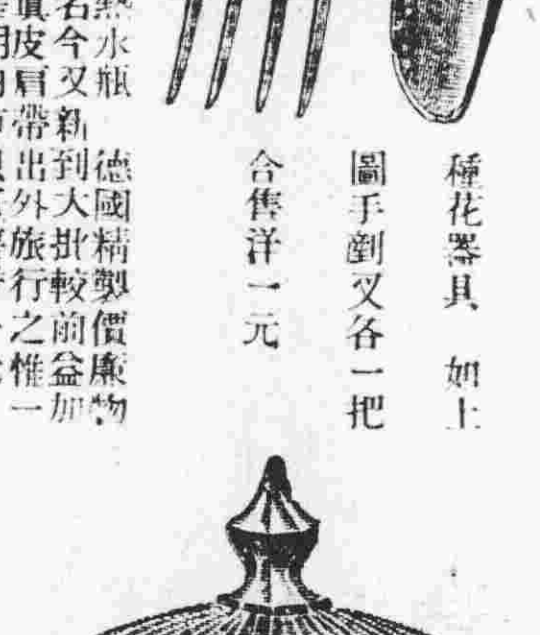 種花器具　如上
圖手劃叉各一把
合售洋一元
熱水瓶　德國精製價廉物
名今又新到大批較前益加
皮肩帶出外旅行之惟一